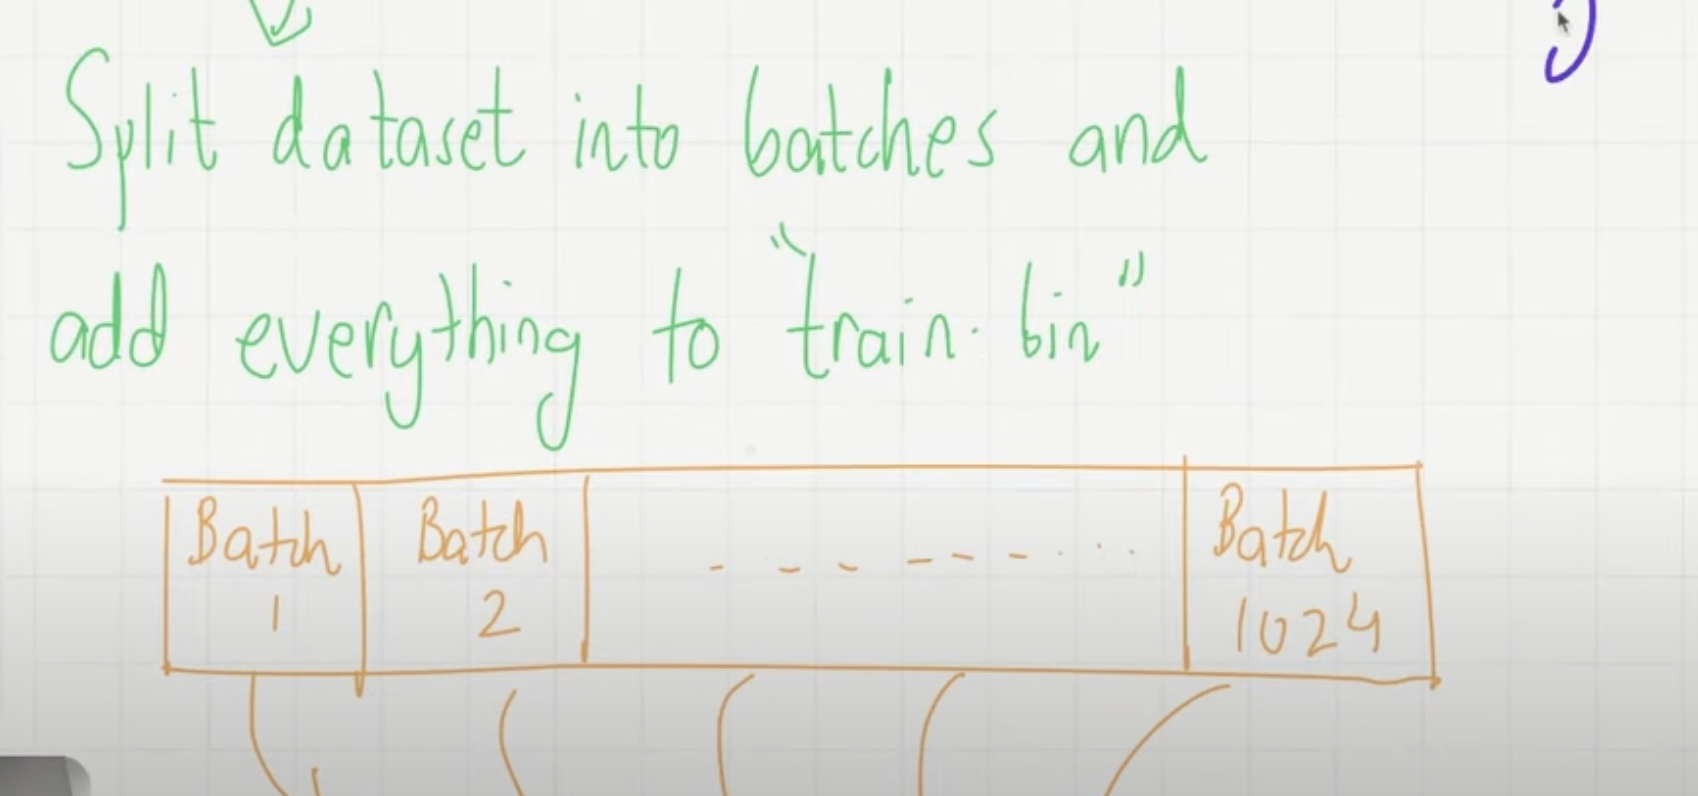 Split dataset into batches and
add everything to "train.bin"
Batch 1
Batch 2
Batch 1024